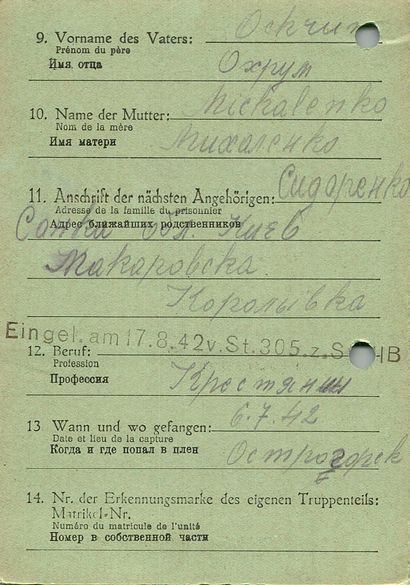 9. Vorname des Vaters:
Prénom du père
Имя отца
Охрум
10. Name der Mutter: Mickalenko
Nom de la mère
Михаленко
Имя матери
11. Anschrift der nächsten Angehörigen: Сидоренко
Adresse de la famille du prisonnier
Адрес ближайших родственников
Обл. Киев
Макаровска
Королывка
Eingel. am 17.8.42 v. St. 305. z. IB
12. Beruf:
Profession
Профессия
Крестянин
6.7.42
13 Wann und wo gefangen:
Date et lieu de la capture
Когда и где попал в плен
14. Nr. der Erkennungsmarke des eigenen Truppenteils:
Matrikel-Nr.
Numéro du matricule de l'unité
Номер в собственной части